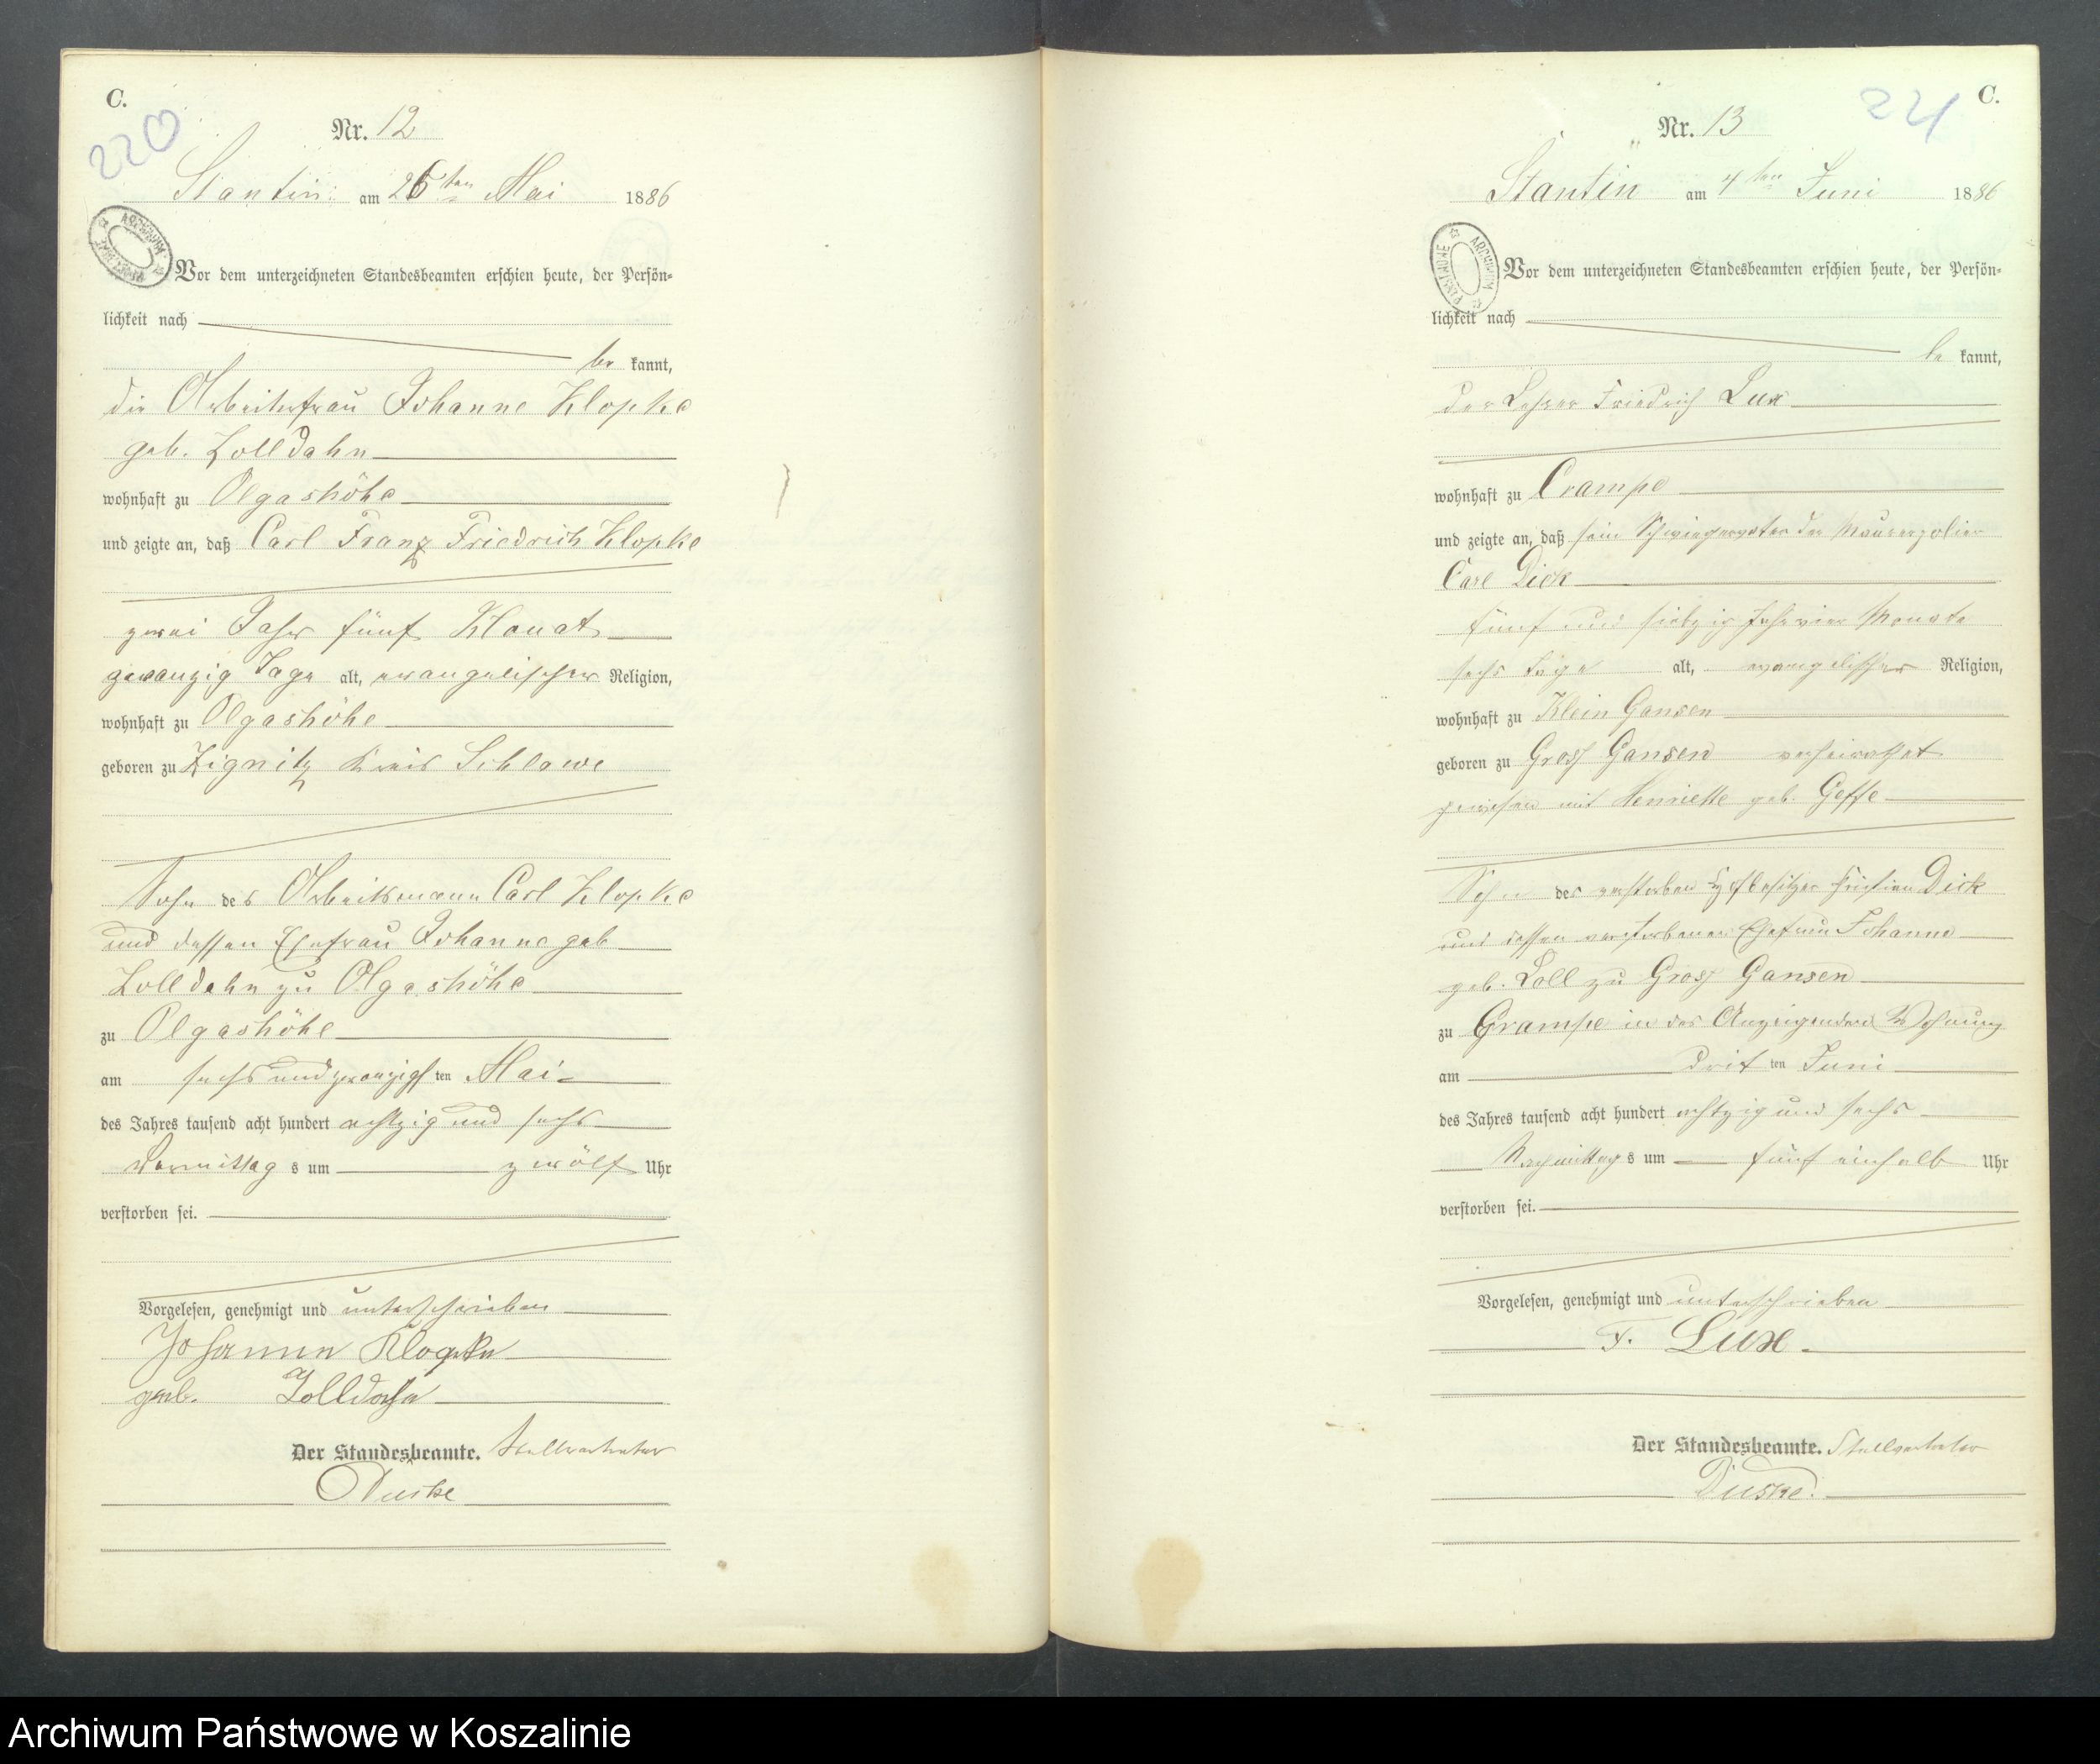 C.
220
Nr. 12
Stantin am 26ten Mai 1886
ARCHIWUM
Vor dem unterzeichneten Standesbeamten erschien heute, der Persön-
lichkeit nach
be kannt,
die Arbeiterfrau Johanne Klopke
geb. Zolldahn
wohnhaft zu Olgashöhe
und zeigte an, daß Carl Franz Friedrich Klopke
zwei Jahr fünf Monat
zwanzig Tage alt, evangelischer Religion,
wohnhaft zu Olgashöhe
geboren zu Zignitz Kreis Schlawe
Sohn des Arbeitsmann Carl Klopke
und dessen Ehefrau Johanne geb
Zolldahn zu Olgashöhe
zu Olgashöhe
am sechsundzwanzigsten Mai
des Jahres tausend acht hundert achtzig und sechs
Vormittags um zwölf Uhr
verstorben sei.
Vorgelesen, genehmigt und unterschrieben
Johanne Klopke
geb. Zolldahn
Der Standesbeamte. Stellvertreter
Duske
C.
221
Nr. 13
Stantin am 4ten Juni 1886
ARCHIWUM PAŃSTWOWE
Vor dem unterzeichneten Standesbeamten erschien heute, der Persön-
lichkeit nach
be kannt,
der Lehrer Friedrich Lux
wohnhaft zu Crampe
und zeigte an, daß sein Schwiegervater der Maurerpolier
Carl Dick
fünf und siebzig Jahr vier Monate
sechs Tage alt, evangelischer Religion,
wohnhaft zu Klein Gansen
geboren zu Gross Gansen verheirathet
gewesen mit Henriette geb.
Sohn des verstorben Dick
und dessen verstorbenen Ehefrau Johanne
geb. Loll zu Gross Gansen
zu Crampe in des Anzeigenden Wohnung
am dritten Juni
des Jahres tausend acht hundert achtzig und sechs
Nachmittags um fünf einhalb Uhr
verstorben sei.
Vorgelesen, genehmigt und unterschrieben
F. Lux
Der Standesbeamte. Stellvertreter
Duske.
Archiwum Państwowe w Koszalinie